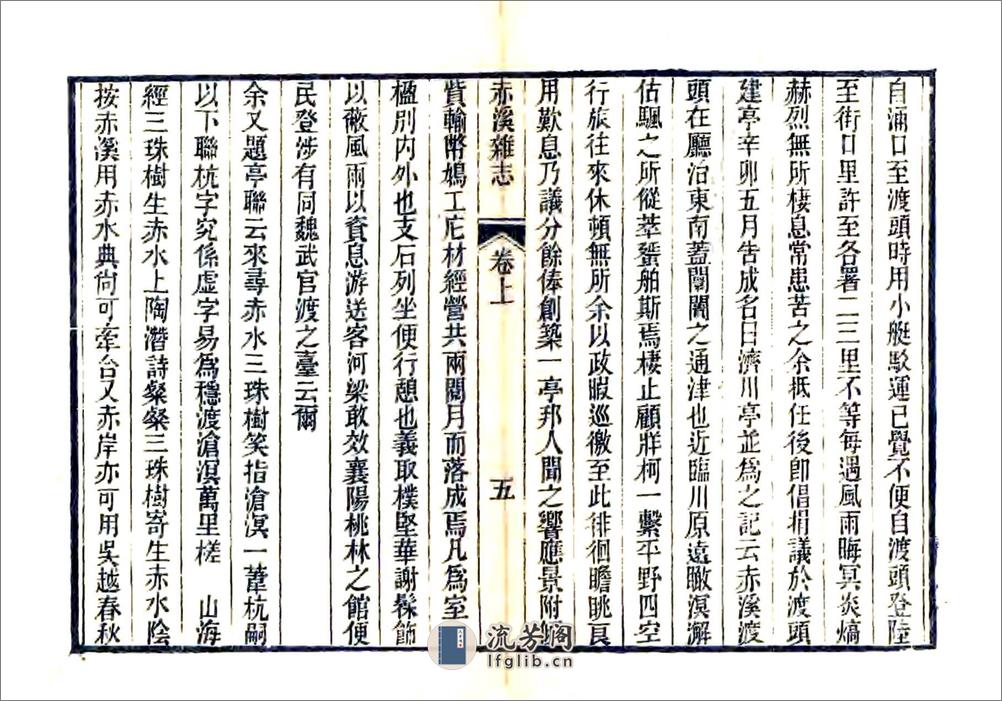 自涌口至渡頭時用小艇駁運已覺不便自渡頭登陸
至街口里許至各署二三里不等每遇風雨晦冥炎熇
赫烈無所棲息常患苦之余抵任後卽倡捐議於渡頭
建亭辛卯五月告成名曰濟川亭並爲之記云赤溪渡
頭在廳治東南蓋闤闠之通津也近臨川原遠瞰溟澥
估颿之所從萃蜑舶斯焉棲止顧牂柯一繫平野四空
行旅往來休頓無所余以政暇巡徼至此徘徊瞻眺良
用歎息乃議分餘俸創築一亭邦人聞之響應景附
赤溪雜志 卷上 五
貲輸幣鳩工庀材經營共兩閱月而落成焉凡爲室
楹別內外也支石列坐便行憩也義取樸堅華謝髹飾
以蔽風雨以資息游送客河梁敢效襄陽桃林之館便
民登涉有同魏武官渡之臺云爾
余又題亭聯云來尋赤水三珠樹笑指滄溟一葦杭嗣
以下聯杭字究係虛字易爲穩渡滄溟萬里槎 山海
經三珠樹生赤水上陶潛詩粲粲三珠樹寄生赤水陰
按赤溪用赤水典尙可牽合又赤岸亦可用吳越春秋
流芳閣
lfglib.cn